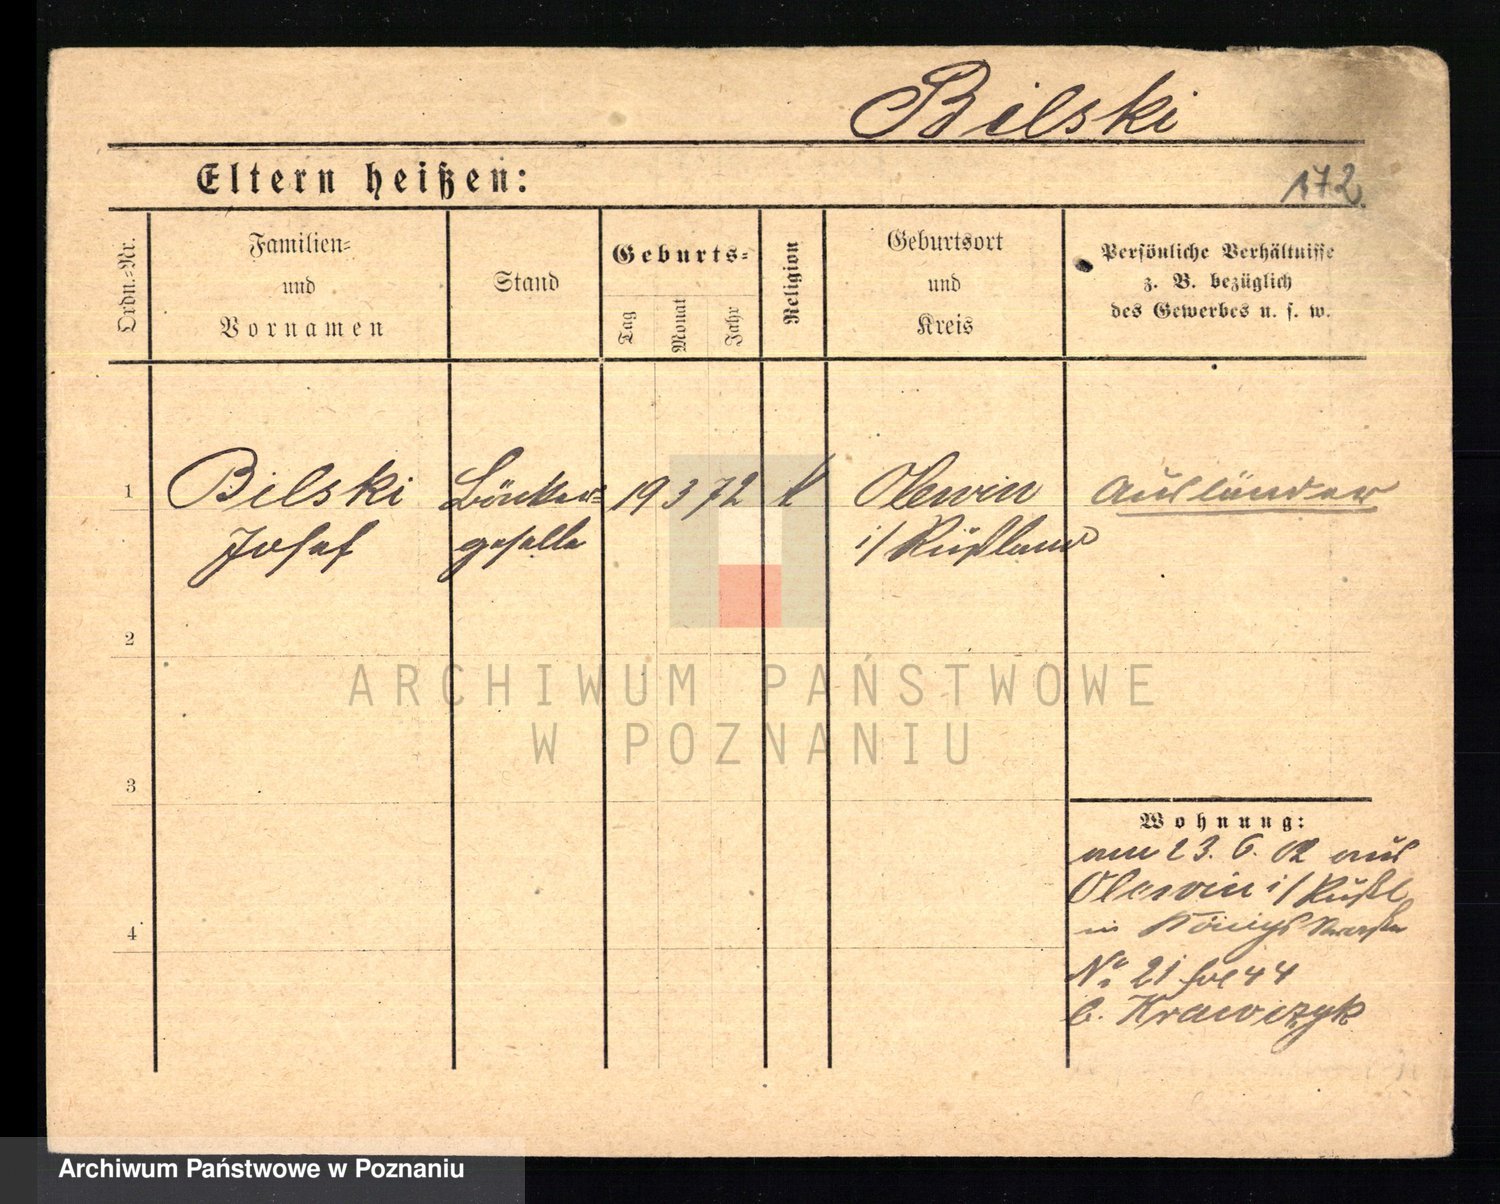 Bilski
Eltern heißen:
172.
Ordn.-Nr.
Familien-
und
Vornamen
Stand
Geburts-
Tag
Monat
Jahr
Religion
Geburtsort
und
Kreis
Persönliche Verhältnisse
z. B. bezüglich
des Gewerbes u. s. w.
1
Bilski
Josef
geselle
19 3 72
K
i/ Rußland
Ausländer
2
3
4
Wohnung:
am 23. 6. 02 aus
i/ Rußl
in Königstraße
No 21 fol 44
b. Krawczyk
ARCHIWUM PAŃSTWOWE
W POZNANIU
Archiwum Państwowe w Poznaniu